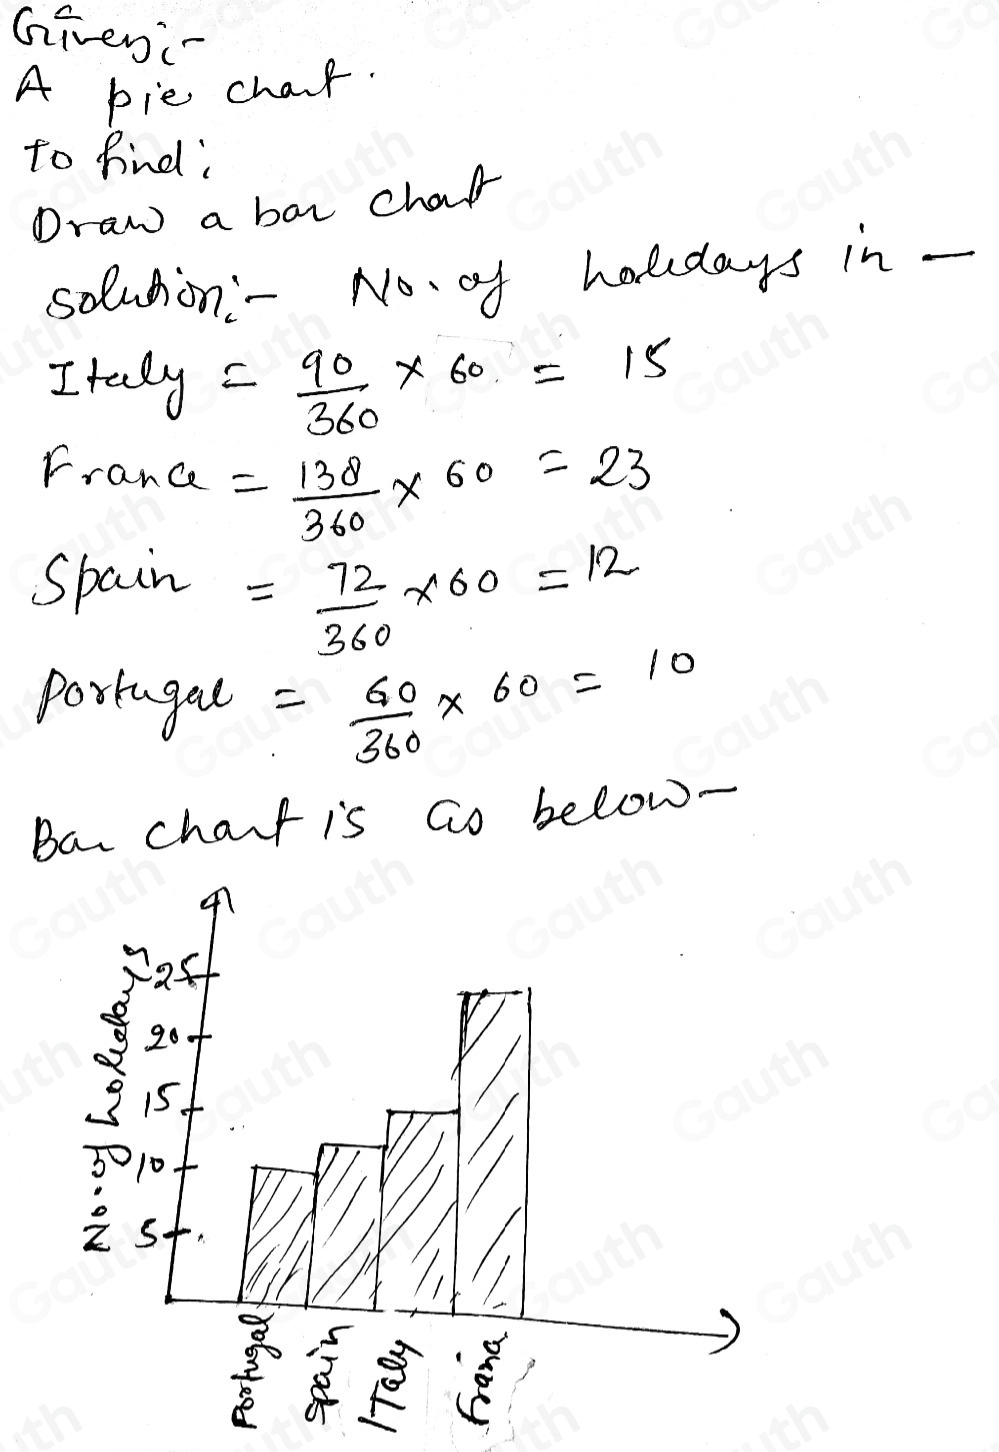 Given:-
A pie chart.
To find:
Draw a bar chart
solution:- No. of holidays in -
Italy = 90/360 × 60 = 15
France = 138/360 × 60 = 23
Spain = 72/360 × 60 = 12
Portugal = 60/360 × 60 = 10
Bar chart is as below-
No. of holidays
25
20
15
10
5
Portugal
Spain
ITaly
France
Gauth